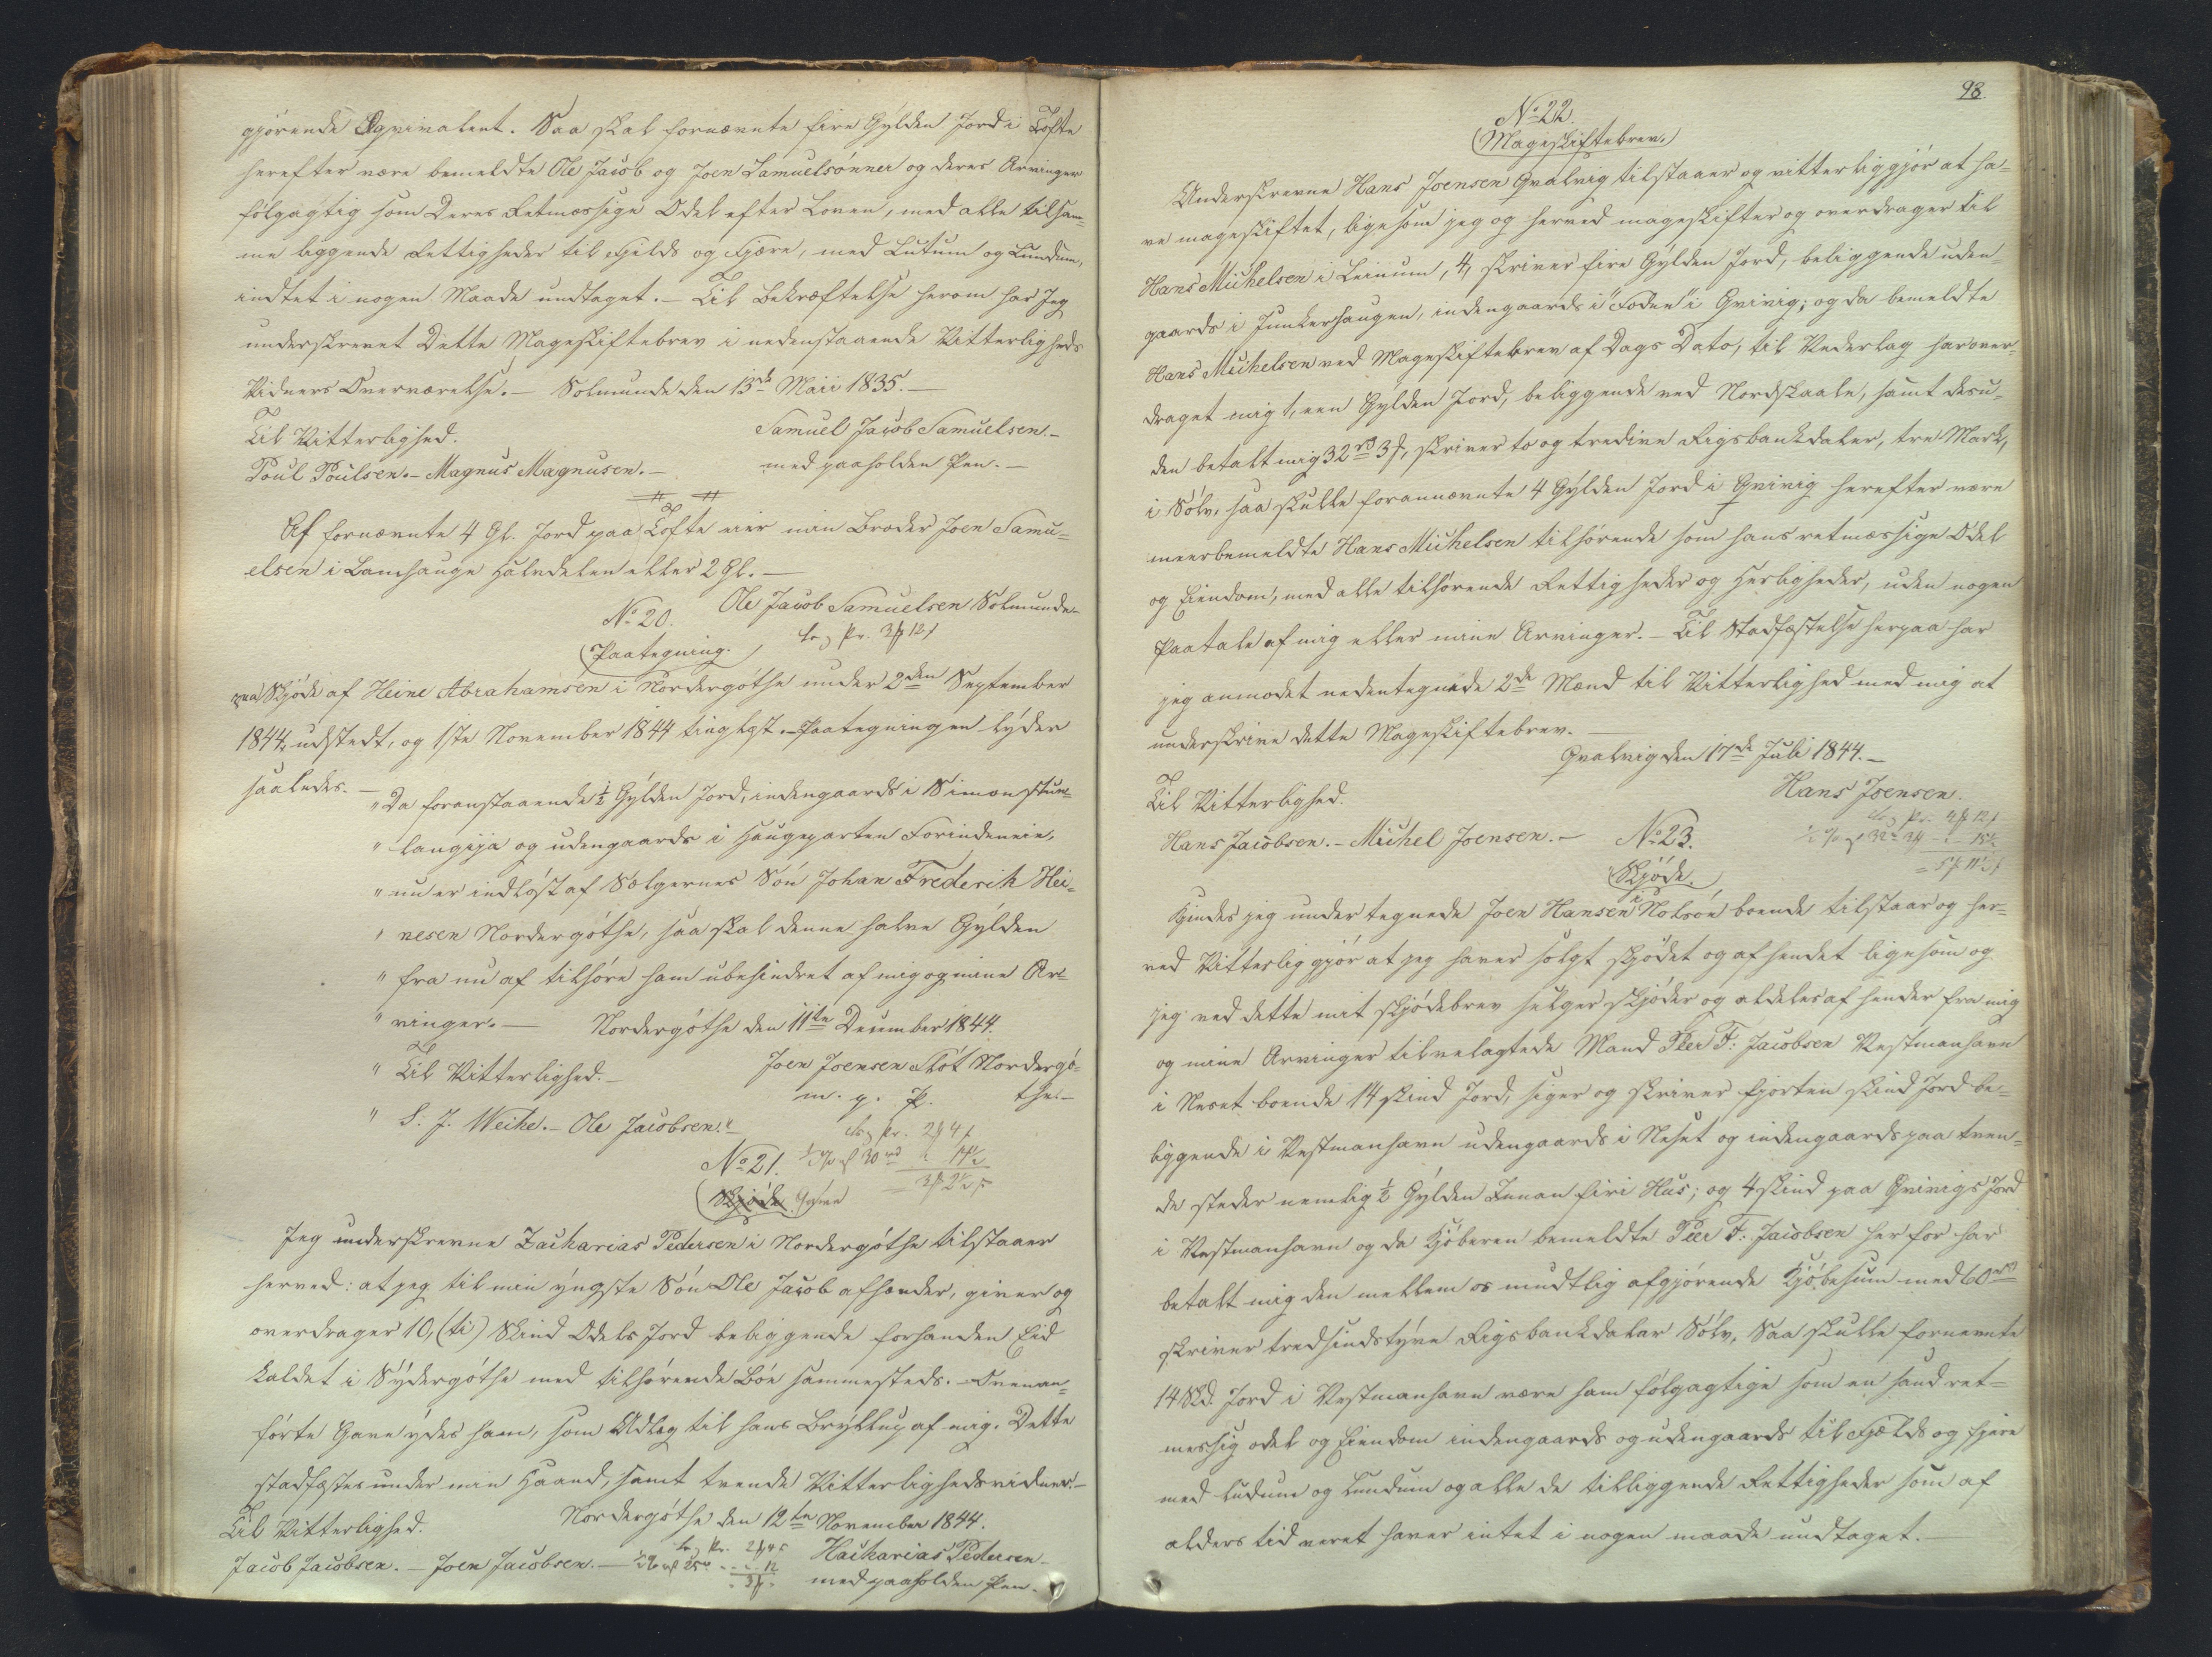 gjørende Eqvivalent. Saa skal fornævnte fire Gylden Jord i Tofte
herefter være bemeldte Ole Jacob og Joen Samuelsønner og deres Arvinger
følgagtig som Deres Retmæssige Odel efter Loven, med alle tilsam-
me liggende Rettigheder til Fjelds og Fjære, med Lutum og Lundum,
indtet i nogen Maade undtaget. – Til Bekræftelse herom har Jeg
underskrevet Dette Mageskiftebrev i nedenstaaende Vitterligheds
Vidners Overværelse. – Solmunde den 13de Maii 1835. –
Til Vitterlighed.
Samuel Jacob Samuelsen. –
Poul Poulsen. – Magnus Magnusen. –
med paaholden Pen. –
Af fornævnte 4 Gl. Jord paa Tofte eier min Broder Joen Samu-
elsen i Lamhauge Halvdelen eller 2 Gl. –
Ole Jacob Samuelsen Solmunde
No 20.
Paategning.
paa Skjøde af Heine Abrahamsen i Nordergøthe under 2den September
1844, udstedt, og 1ste November 1844 tinglæst. – Paategningen lyder
saaledes. –
"Da foranstaaende ½ Gylden Jord, indengaards i Simonstun-
" langeja og udengaards i Haugeparten Forindeneie,
" nu er indløst af Sælgernes Søn Johan Frederik Hei-
" nesen Nordergøthe, saa skal denne halve Gylden
" fra nu af tilhøre ham ubehindret af mig og mine Ar-
" vinger. – Nordergøthe den 11te December 1844.
" Til Vitterlighed. –
Joen Joensen Slot Nordergø-
the. –
m. p. P.
" S. J. Weihe. – Ole Jacobsen."
No 21.
Skjøde. Gave
Jeg underskrevne Zacharias Pedersen i Nordergøthe tilstaaer
herved: at jeg til min yngste Søn Ole Jacob afhænder, giver og
overdrager 10, (ti) Skind Odels Jord beliggende forhanden Eid
kaldet i Sydergøthe med tilhørende Bøe sammesteds. – Ovenan-
førte Gave ydes ham, som Udlæg til hans Bryllup af mig. Dette
stadfæstes under min Haand, samt tvende Vitterlighedsvidner. –
Til Vitterlighed.
Nordergøthe den 12te November 1844.
Jacob Jacobsen. – Joen Jacobsen. –
Zacharias Pedersen. –
med paaholden Pen.
98.
No 22.
Mageskiftebrev.
Underskrevne Hans Joensen Qvalvig tilstaaer og vitterliggjør at ha-
ve mageskiftet, ligesom jeg og herved mageskifter og overdrager til
Hans Michelsen i Leinum, 4, skriver fire Gylden Jord, beliggende uden-
gaards i Junkershaugen, indengaards i "Foden" i Qvivig; og da bemeldte
Hans Michelsen ved Mageskiftebrev af Dags Dato, til Vederlag har over-
draget mig 1, een Gylden Jord, beliggende ved Nordskaale, samt desu-
den betalt mig 32 rd 3 mk, skriver to og tredive Rigsbankdaler, tre Mark,
i Sølv, saa skulle forannævnte 4 Gylden Jord i Qvivig herefter være
meerbemeldte Hans Michelsen tilhørende som hans retmæssige Odel
og Eiendom, med alle tilhørende Rettigheder og Herligheder, uden nogen
Paatale af mig eller mine Arvinger. – Til Stadfæstelse herpaa har
jeg anmodet nedentegnede 2de Mænd til Vitterlighed med mig at
underskrive dette Mageskiftebrev.
Qvalvig den 17de Juli 1844. –
Til Vitterlighed.
Hans Joensen.
Hans Jacobsen. – Michel Joensen. –
No 23.
Skjøde.
Kjendes jeg undertegnede Joen Hansen i Nolsøe boende tilstaar og her-
ved Vitterliggjør at jeg haver solgt skjødet og afhendet ligesom og
jeg ved dette mit skjødebrev selger skjøder og aldeles afhender fra mig
og mine Arvinger til velagtede Mand Peer F: Jacobsen Vestmanhavn
i Neset boende 14 skind Jord, siger og skriver fjorten skind Jord be-
liggende i Vestmanhavn udengaards i Neset og indengaards paa tven-
de steder nemlig ½ Gylden Innan firi Hus; og 4 skind paa Qvivigs Jord
i Vestmanhavn og da Kjøberen bemeldte Peer F: Jacobsen herfor har
betalt mig den mellem os mundtlig afgjørende Kjøbesum med 60 rd
skriver tredsindstyve Rigsbankdaler Sølv. Saa skulle fornevnte
14 Skd. Jord i Vestmanhavn være ham følgagtige som en sand ret-
messig odel og Eiendom indengaards og udengaards til Fjelds og Fjære
med ludum og lundum og alle de tilliggende Rettigheder som af
alders tid veret haver intet i nogen maade undtaget. –